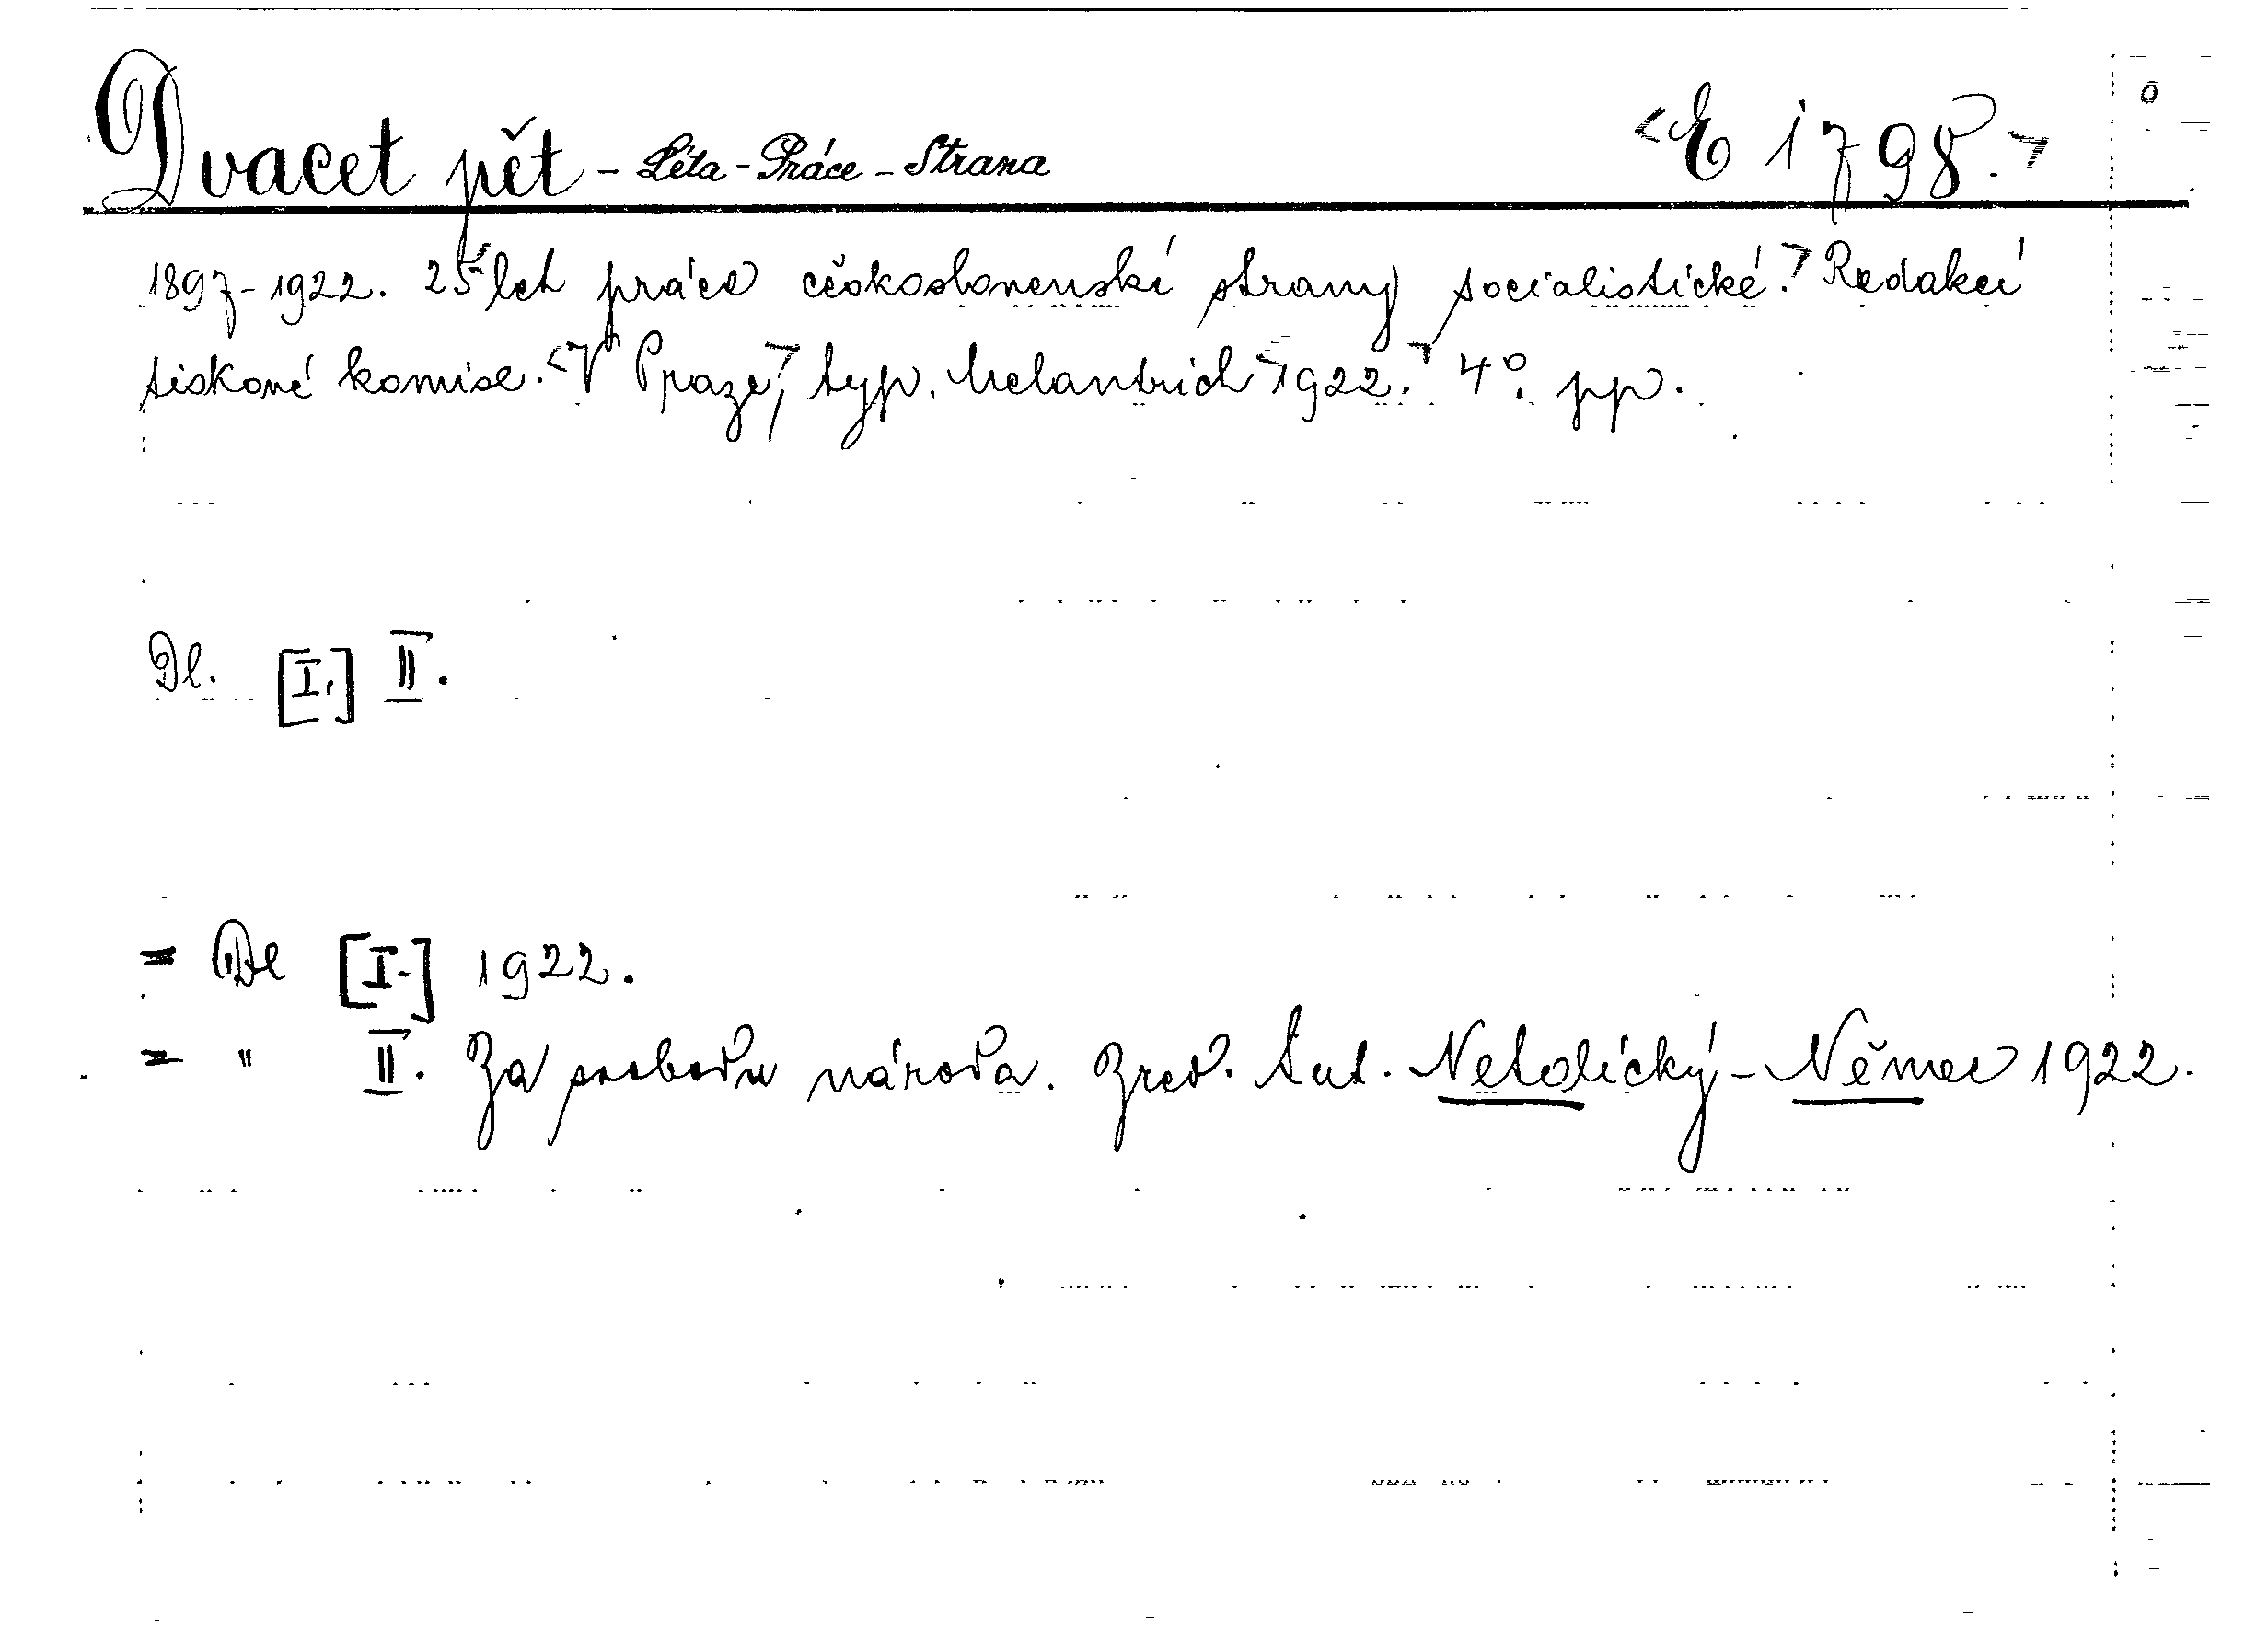 Dvacet pět - Léta - Práce - Strana <E 1798.>
1897-1922. 25 let práce československé strany socialistické. Redakcí
tiskové komise. <V Praze, typ. Melantrich 1922.> 4°. pp.
Dl. [I.] II.
= Dl [I.] 1922.
= " II. Za svobodu národa. Zred. Ant. Netolický - Němec 1922.